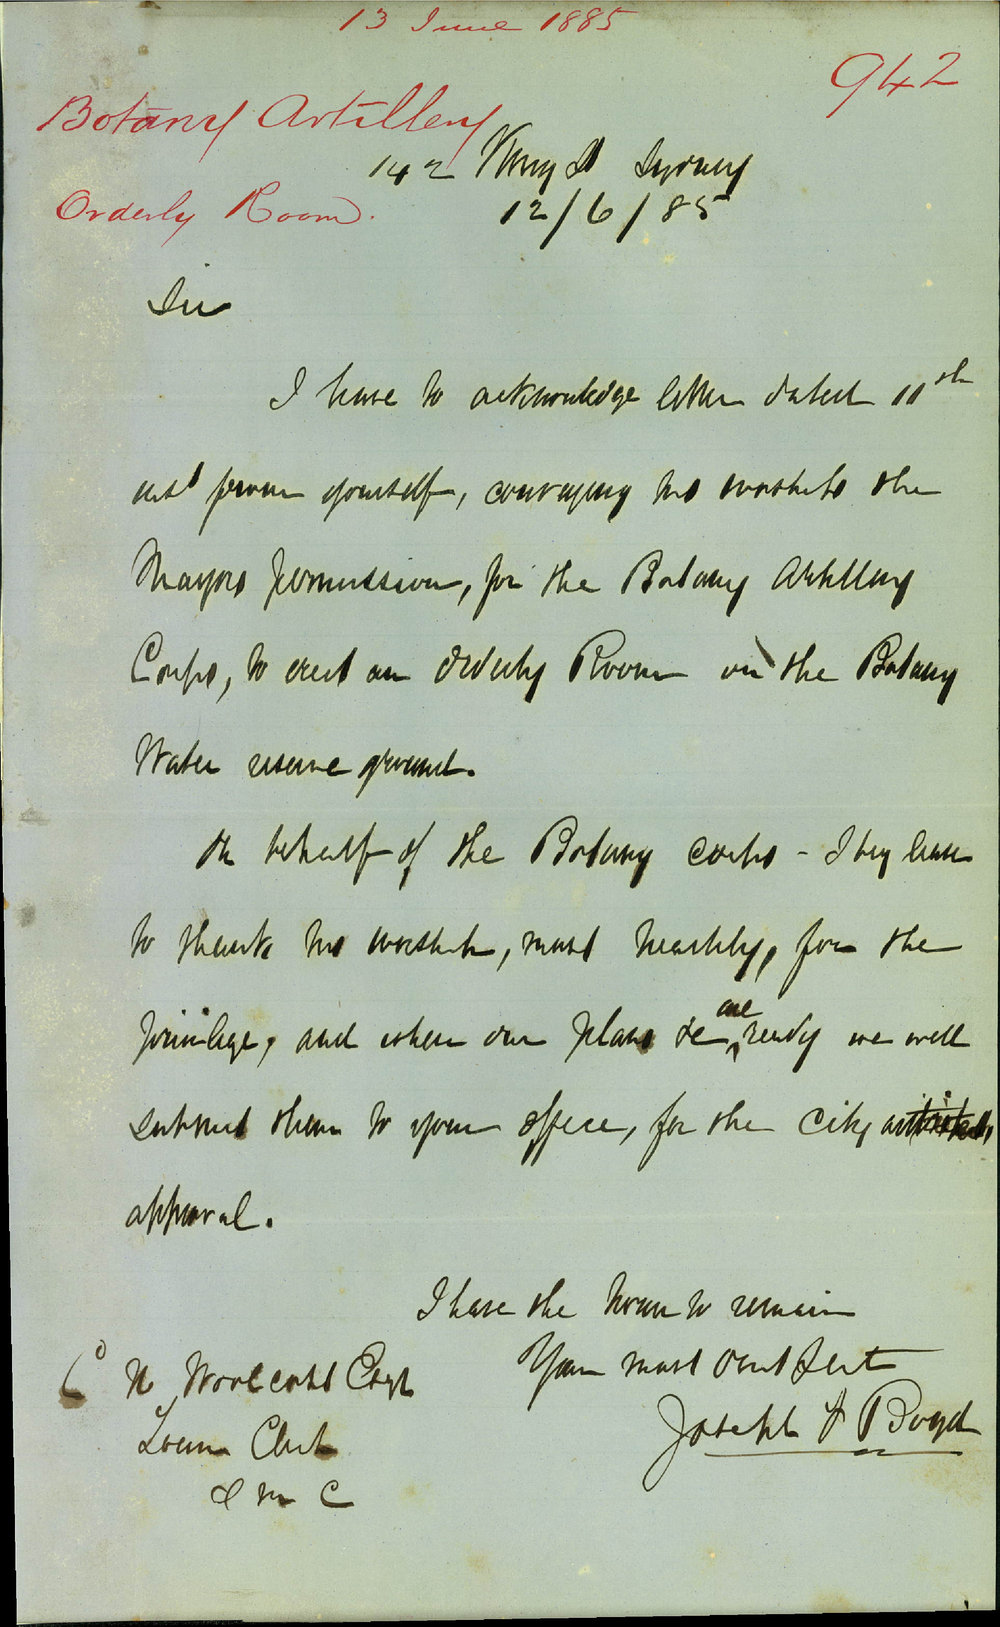 13 June 1885
942
Botany Artillery
142 King St Sydney
Orderly Room.
12/6/85
Sir
I have to acknowledge letter dated 11th
inst from yourself, conveying his worships the
Mayors permission, for the Botany Artillery
Corps, to erect an Orderly Room on the Botany
Water reserve ground.
On behalf of the Botany Corps - I beg leave
to thank his worship, most heartily, for the
privilege, and when our plans &c are ready we will
submit them to your office, for the City
approval.
I have the honor to remain
Your most Obedt Servt
Joseph F Boyd
C H Woolcott Esqr
Town Clerk
S M C